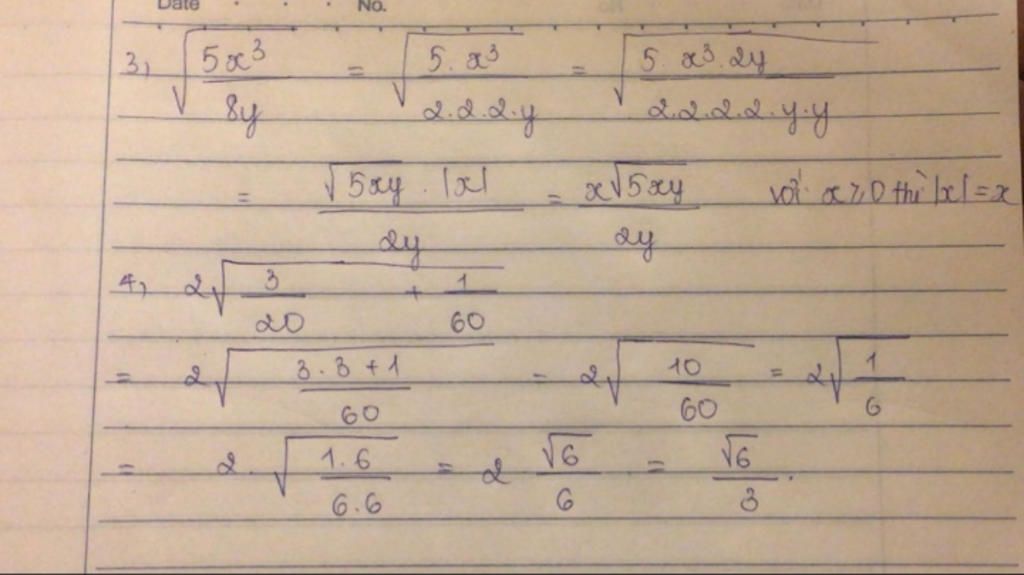 Date . . . No.
3, √(5x³/8y) = √(5.x³/2.2.2.y) = √(5.x³.2y/2.2.2.2.y.y)
= √5xy.|x|/2y = x√5xy/2y với x ≥ 0 thì |x| = x
4, 2√(3/20 + 1/60)
= 2√(3.3+1/60) = 2√(10/60) = 2√(1/6)
= 2.√(1.6/6.6) = 2 √6/6 = √6/3.